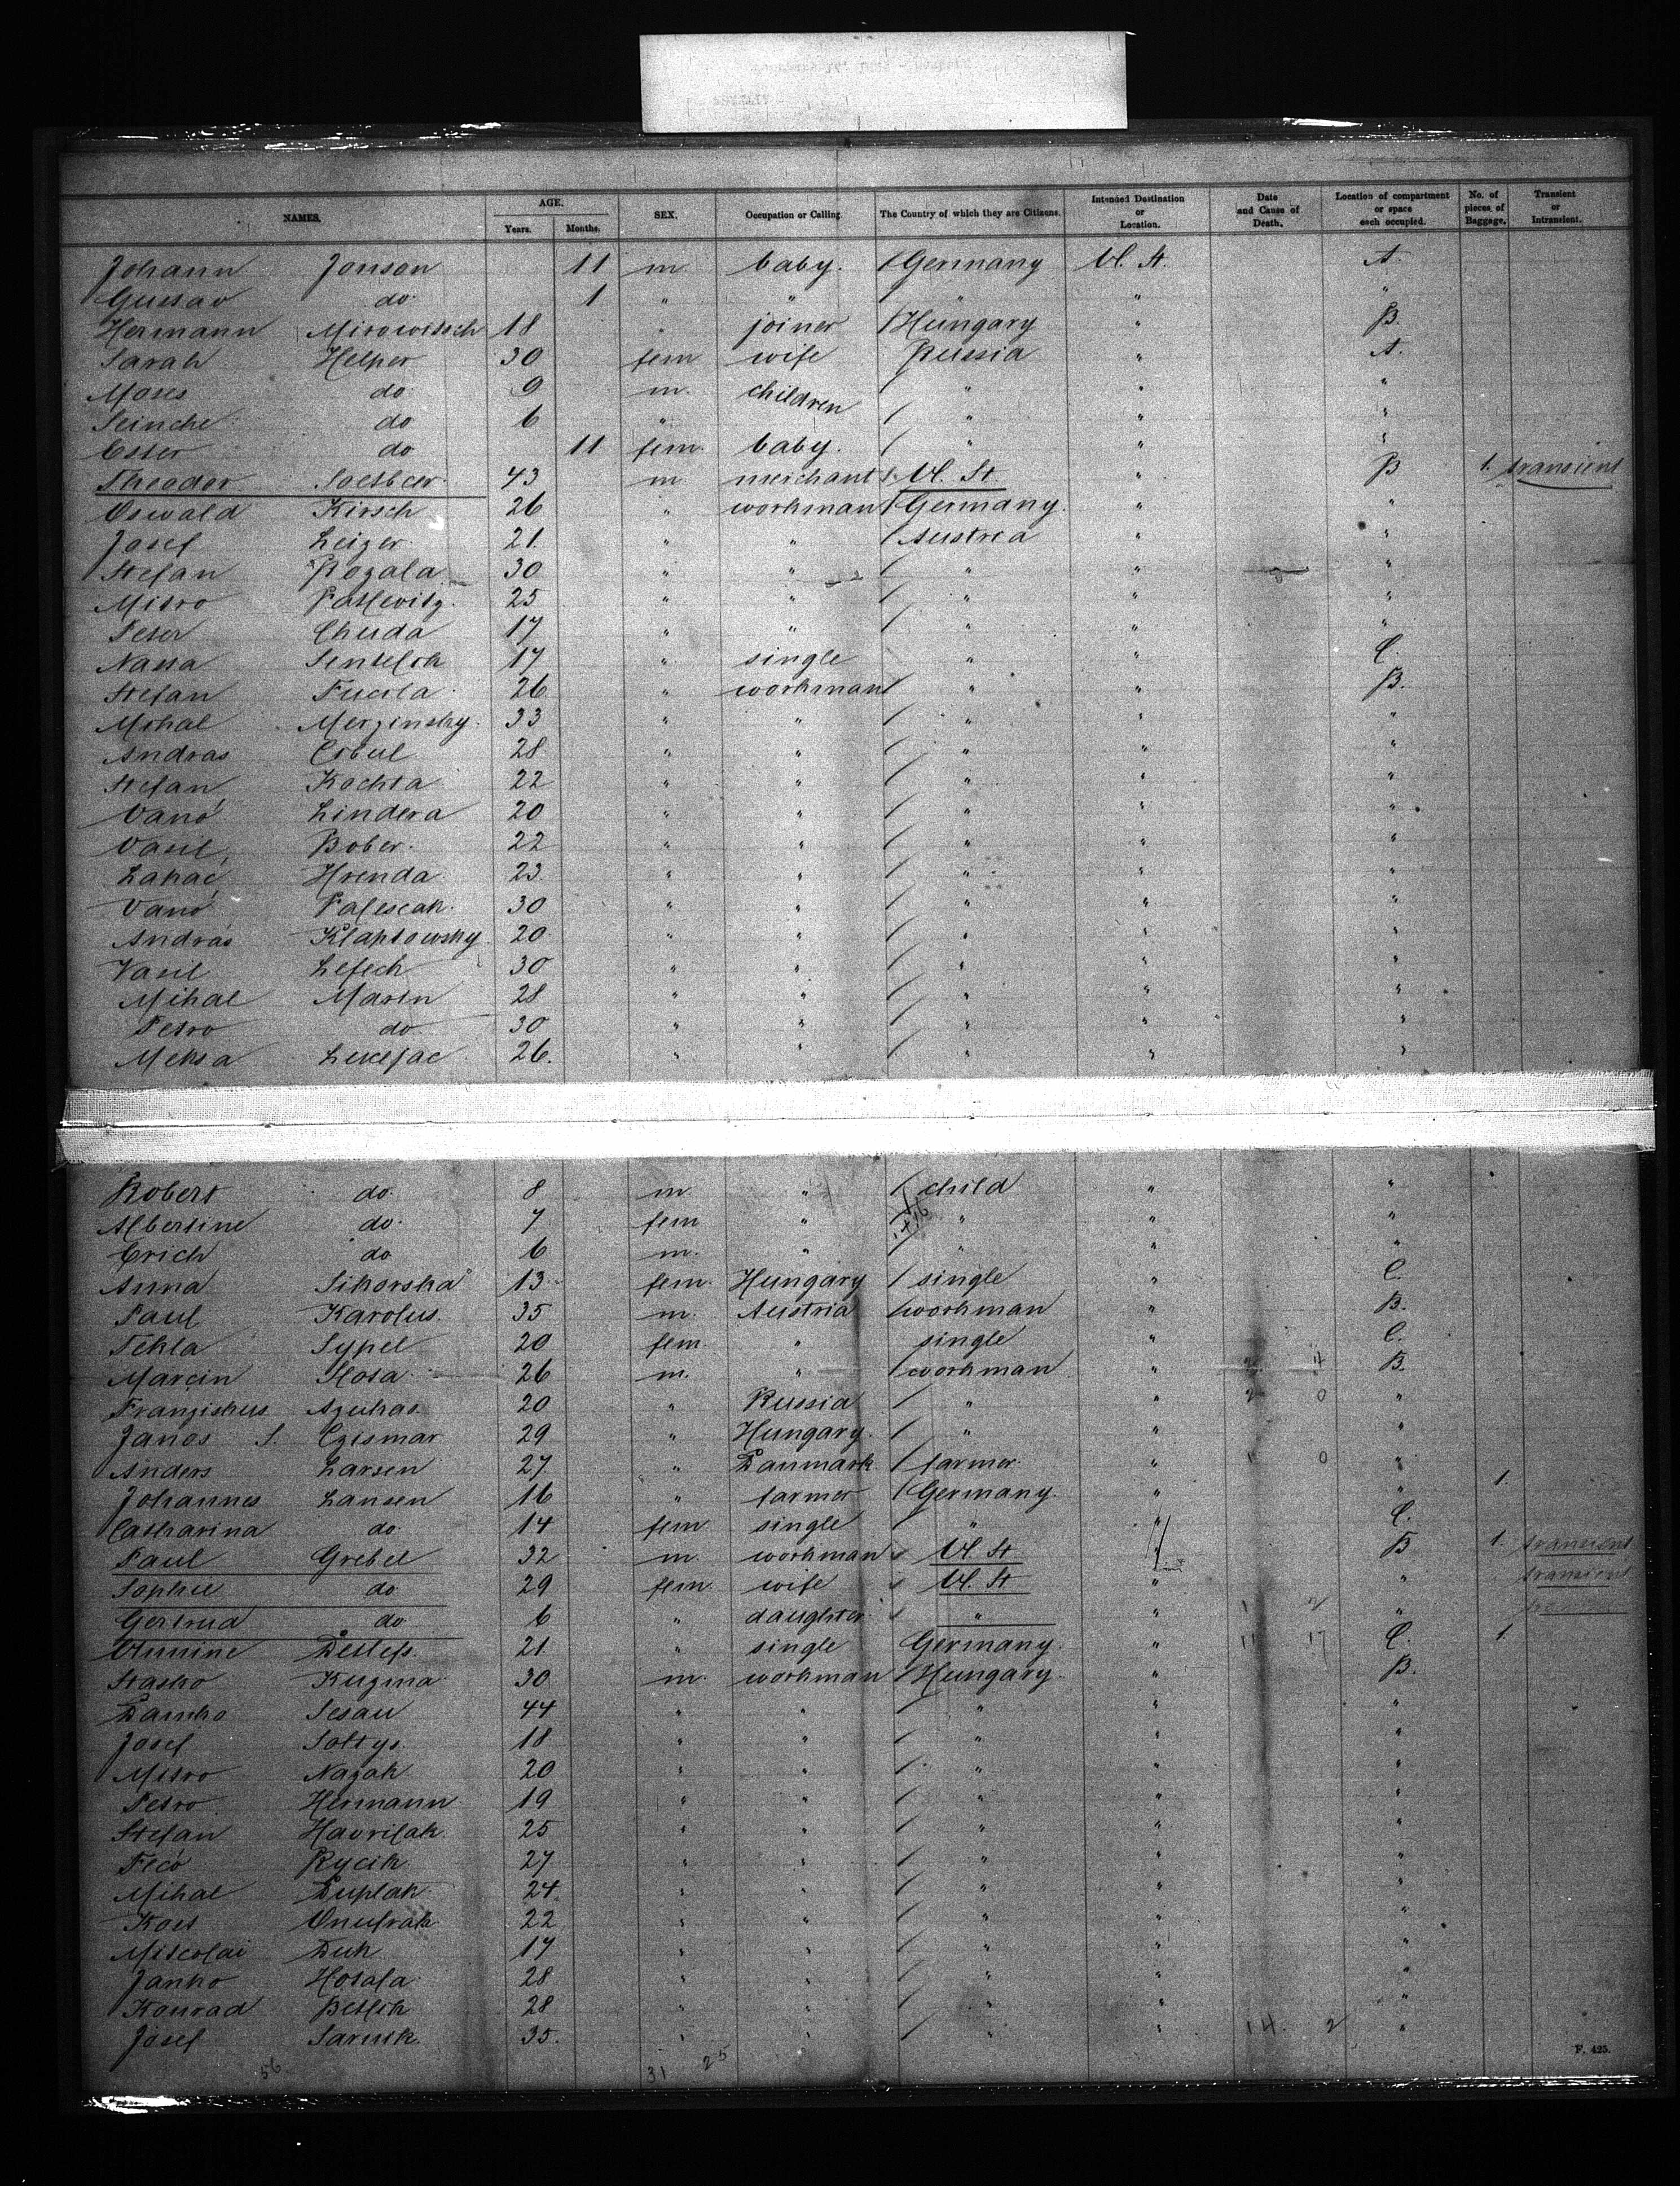 NAMES. AGE. Years. Months. SEX. Occupation or Calling. The Country of which they are Citizens. Intended Destination or Location. Date and Cause of Death. Location of compartment or space each occupied. No. of pieces of Baggage. Transient or Intransient.
Johann Jonson 11 m. baby. Germany U. St. A.
Gustav do. 1 " " " " "
Hermann Mirowitsch 18 " joiner Hungary " B.
Sarah Helper 30 fem wife Russia " A.
Moses do. 9 m. children " " "
Seinche do 6 " " " "
Ester do 11 fem. baby. " " "
Theodor Soetbeer 43 m merchant U. St. " B 1. transient
Oswald Kirsch 26 " workman Germany. " "
Josef Leizer 21. " " Austria " "
Stefan Rogala 30 " " " " "
Mitro 25 " " " " "
Peter Chuda 17 " " " " "
Nassa 17 " single " " C.
Stefan 26 " workman " " B.
Mihal Merzinsky. 33 " " " " "
Andras Cibul 28 " " " " "
Stefan Kochta 22 " " " " "
Vano Lindera 20 " " " " "
Vasil Bober. 22 " " " " "
Hrenda 23 " " " " "
Vano 30 " " " " "
Andras Klaptowsky 20 " " " " "
Vasil 30 " " " " "
Mihal 28 " " " " "
Petro do 30 " " " " "
26. " " " " "
Robert do. 8 m " child " "
Albertine do. 7 fem " " " "
Erich do 6 m. " " " "
Anna Sikorska 13 fem Hungary single " C.
Paul Karolus. 35 m. Austria workman " B.
Tekla Sypel 20 fem " single " C.
Marcin 26 m. " workman " B.
Franziskus 20 " Russia " " "
Janos S. Czismar 29 " Hungary. " " "
Anders Larsen 27 " Danmark farmer " "
Johannes Lansen 16 " farmer Germany. " " 1.
Catharina do. 14 fem single " " C.
Paul Grebel 32 m. workman U. St. " B 1. transient
Sophie do 29 fem. wife U. St " " transient
Gertrud do 6 " daughter " " "
Detlefs. 21. " single Germany. " C. 1.
Stasko Kuzma 30 m. workman Hungary. " B.
Damko Sesau 44 " " " " "
Josef Soltys. 18 " " " " "
Mitro Nazak 20 " " " " "
Petro Hermann 19 " " " " "
Stefan Havrilak. 25 " " " " "
Feco Rycik 27 " " " " "
Mihal Duplak 24 " " " " "
Onufrak 22 " " " " "
Duk 17 " " " " "
Janko 28 " " " " "
Konrad 28 " " " " "
Josef 35. " " " 14. 2 "
56 31 25
F. 425.